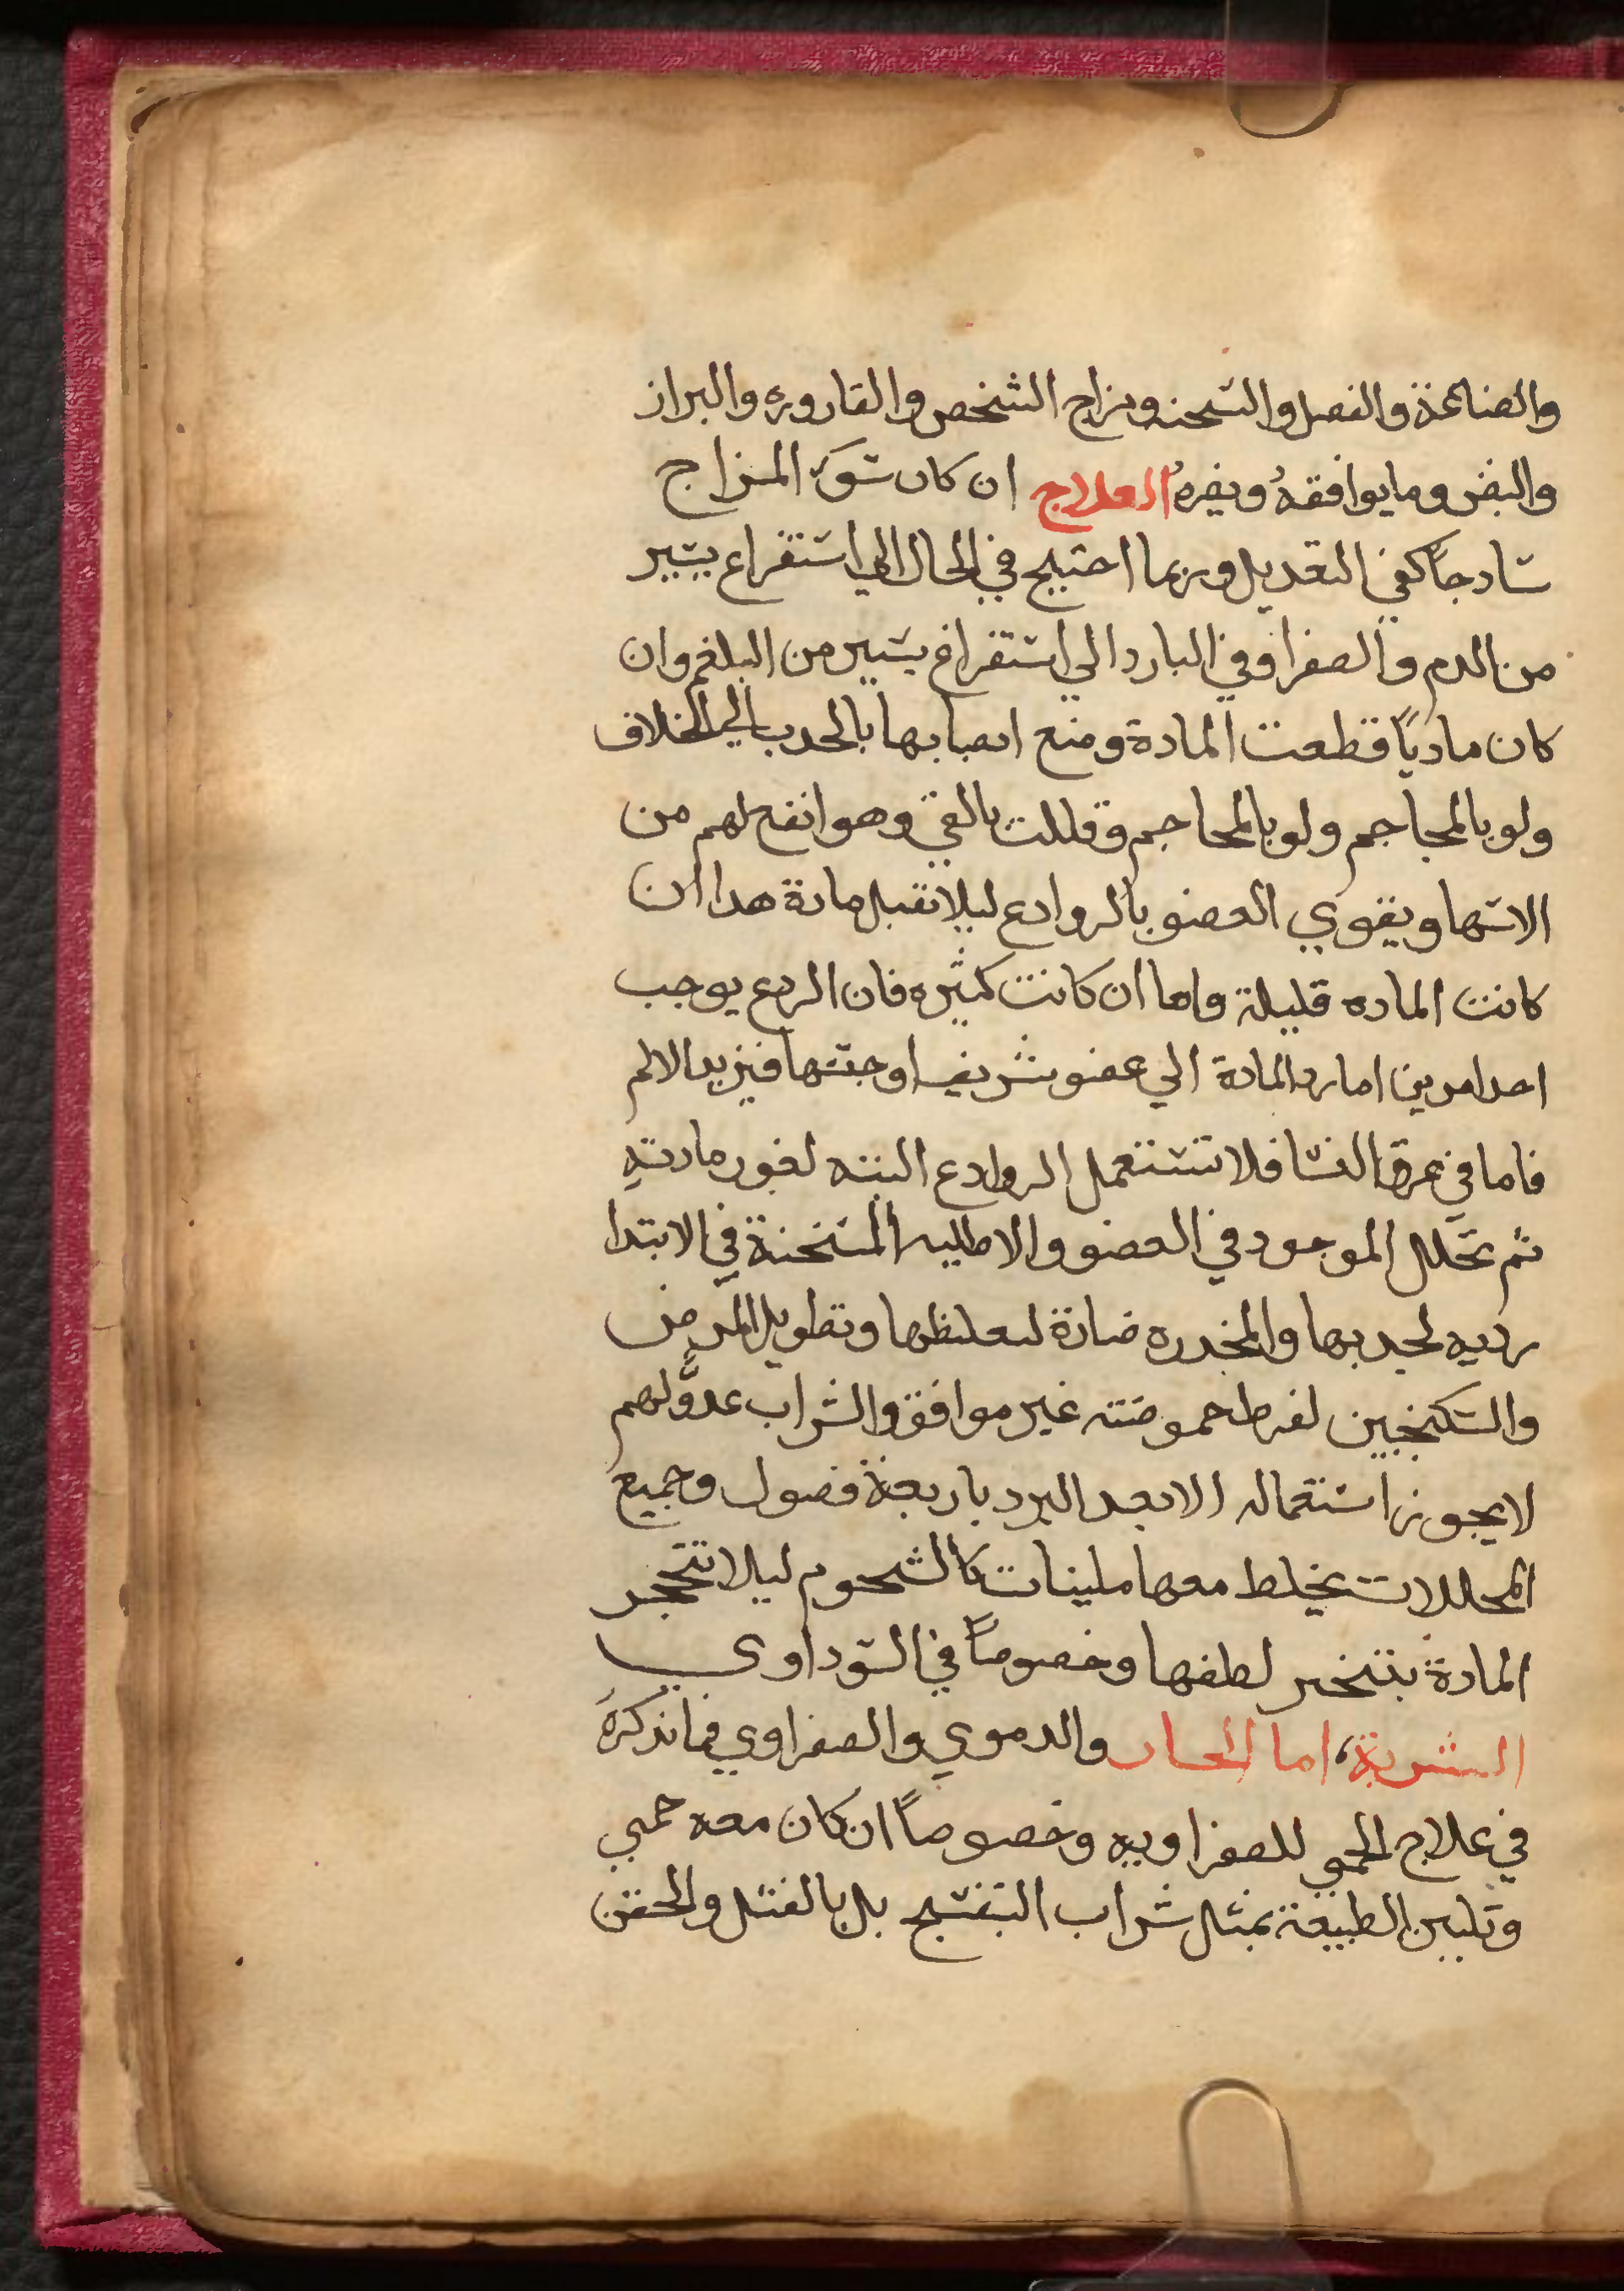 والصناعة والفصل والسحنه ومزاج الشخص والقاروره والبراز
والنبض وما يوافقهُ ويضرهُ العلاج ان كان سوَ المزاج
سادجاً كفي التعديل وربما احتيج في الحال الي استفراع يسير
من الدم والصفرا وفي البارد الي استفراغ يسير من البلغم وان
كان مادياً قطعت المادة ومنع انصبابها بالجدب الي الخلاف
ولو بالمحاجم ولو بالمحاجم وقللت بالقي وهو انفع لهم من
الاسهاو يقوي العضو بالروادع ليلا تقبل مادة هدا ان
كانت الماده قليلة واما ان كانت كثيره فان الردع يوجب
احد امرين اما رد المادة الي عضو شريف او حبسها فيزيد الالم
فاما في عرق النسا فلا تستعمل الروادع البته لغور مادته
ثم تحلل الموجود في العضو والاطليه المسخنة في الابتدا
رديه لجدبها والمخدره ضارة لتغليظها وتطويل المرض
والسكنجبين لفرط حموضته غير موافق والشراب عدوٌّ لهم
لا يجوز استعماله الا بعد البرد باربعة فصول وجميع
المحللات يخلط معها ملينات كالشحوم ليلا تتحجر
المادة بتبخر لطفها وخصوصاً في السوداوي
الشربة، اما الحار والدموي والصفراوي فما نذكرهَ
في علاج الحمي للصفراويه وخصوصاً ان كان معه حمي
وتليين الطبيعة بمثل شراب البنفسج بل بالفتل والحقن